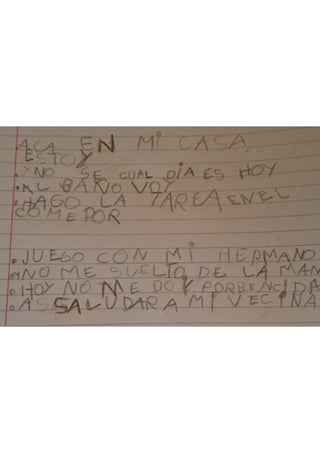 ACA EN MI CASA
ESTOY
.Y NO SE CUAL DIA ES HOY
.AL BAÑO VOY
.HAGO LA TAREA EN EL
COMEPOR
.JUEGO CON MI HERMANO
.NO ME SUELTO DE LA MAN
.HOY NO ME DOY POR BENCIDA
.A SALUDAR A MI VECINA